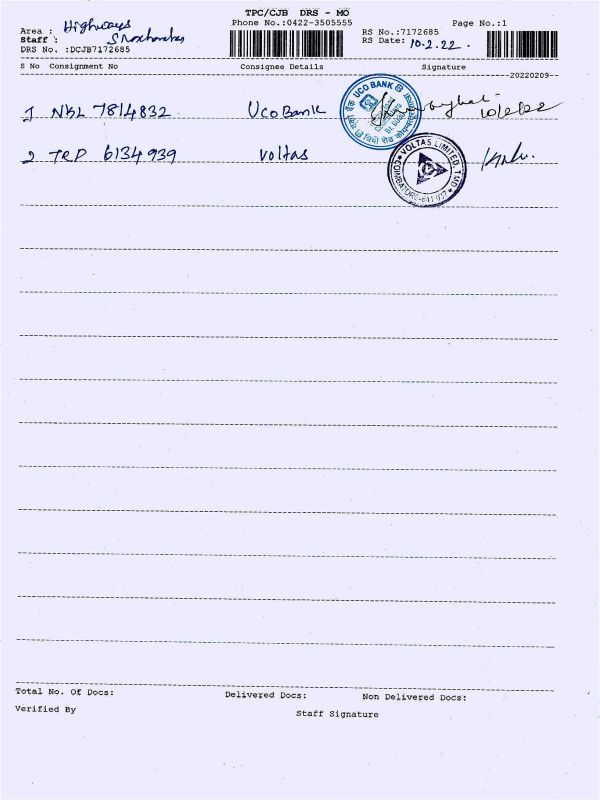 TPC/CJB DRS - MO
Phone No.:0422-3505555
Page No.:1
Area : Highways
Staff :
DRS No. :DCJB7172685
RS No.:7172685
RS Date: 10.2.22.
S No Consignment No Consignee Details Signature
20220209
1 NKL 7814832 UCo Bank 10/2/22
UCO BANK
2 TRP 6134939 Voltas
VOLTAS LIMITED, TMD
COIMBATORE-641 037
Total No. Of Docs: Delivered Docs: Non Delivered Docs:
Verified By Staff Signature